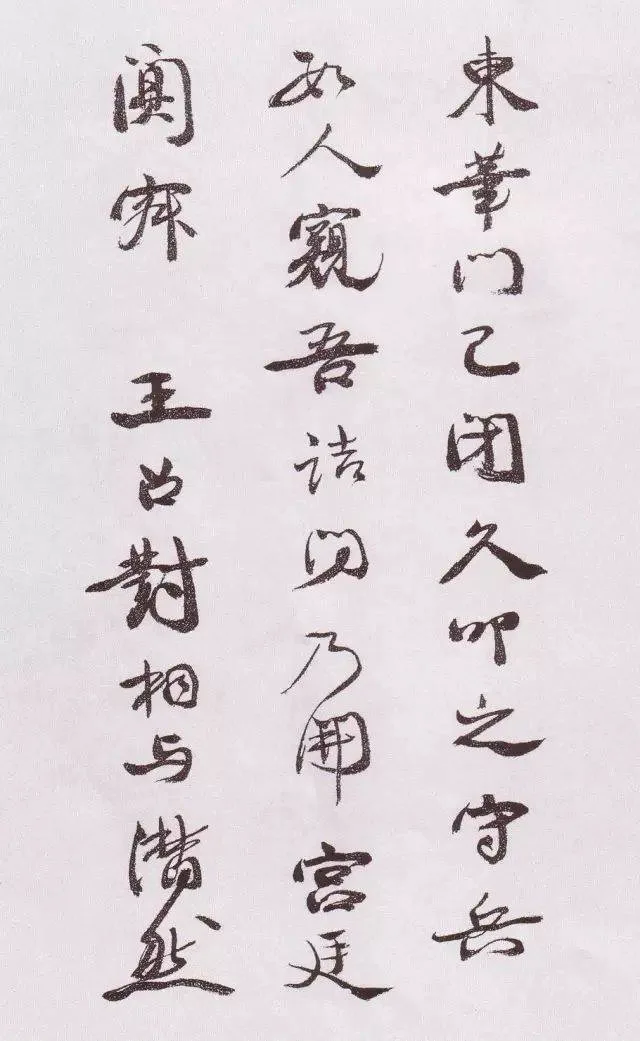 東華門已閉久叩之守兵
人窺吾詰問乃開宮廷
闃寂 王召對相与潸然